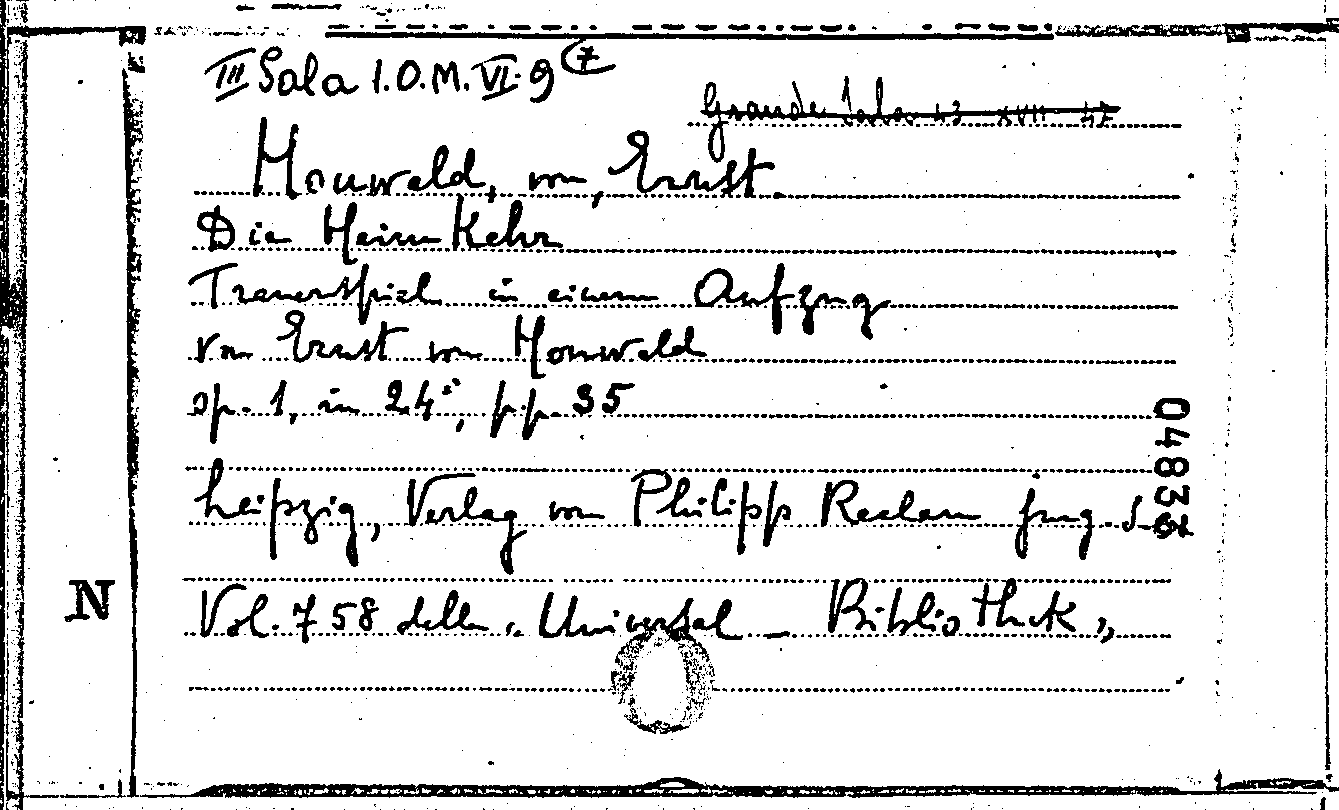 III Sala I.O.M. VI. 9 (7
Grande Sala 43 XVII 47
Houwald, von, Ernst.
Die Heimkehr
Trauerspiel in einem Aufzug
von Ernst von Houwald
op. 1, in 24°, pp. 35
Leipzig, Verlag von Philipp Reclam jung.
Vol. 758 della "Universal - Bibliothek"
N